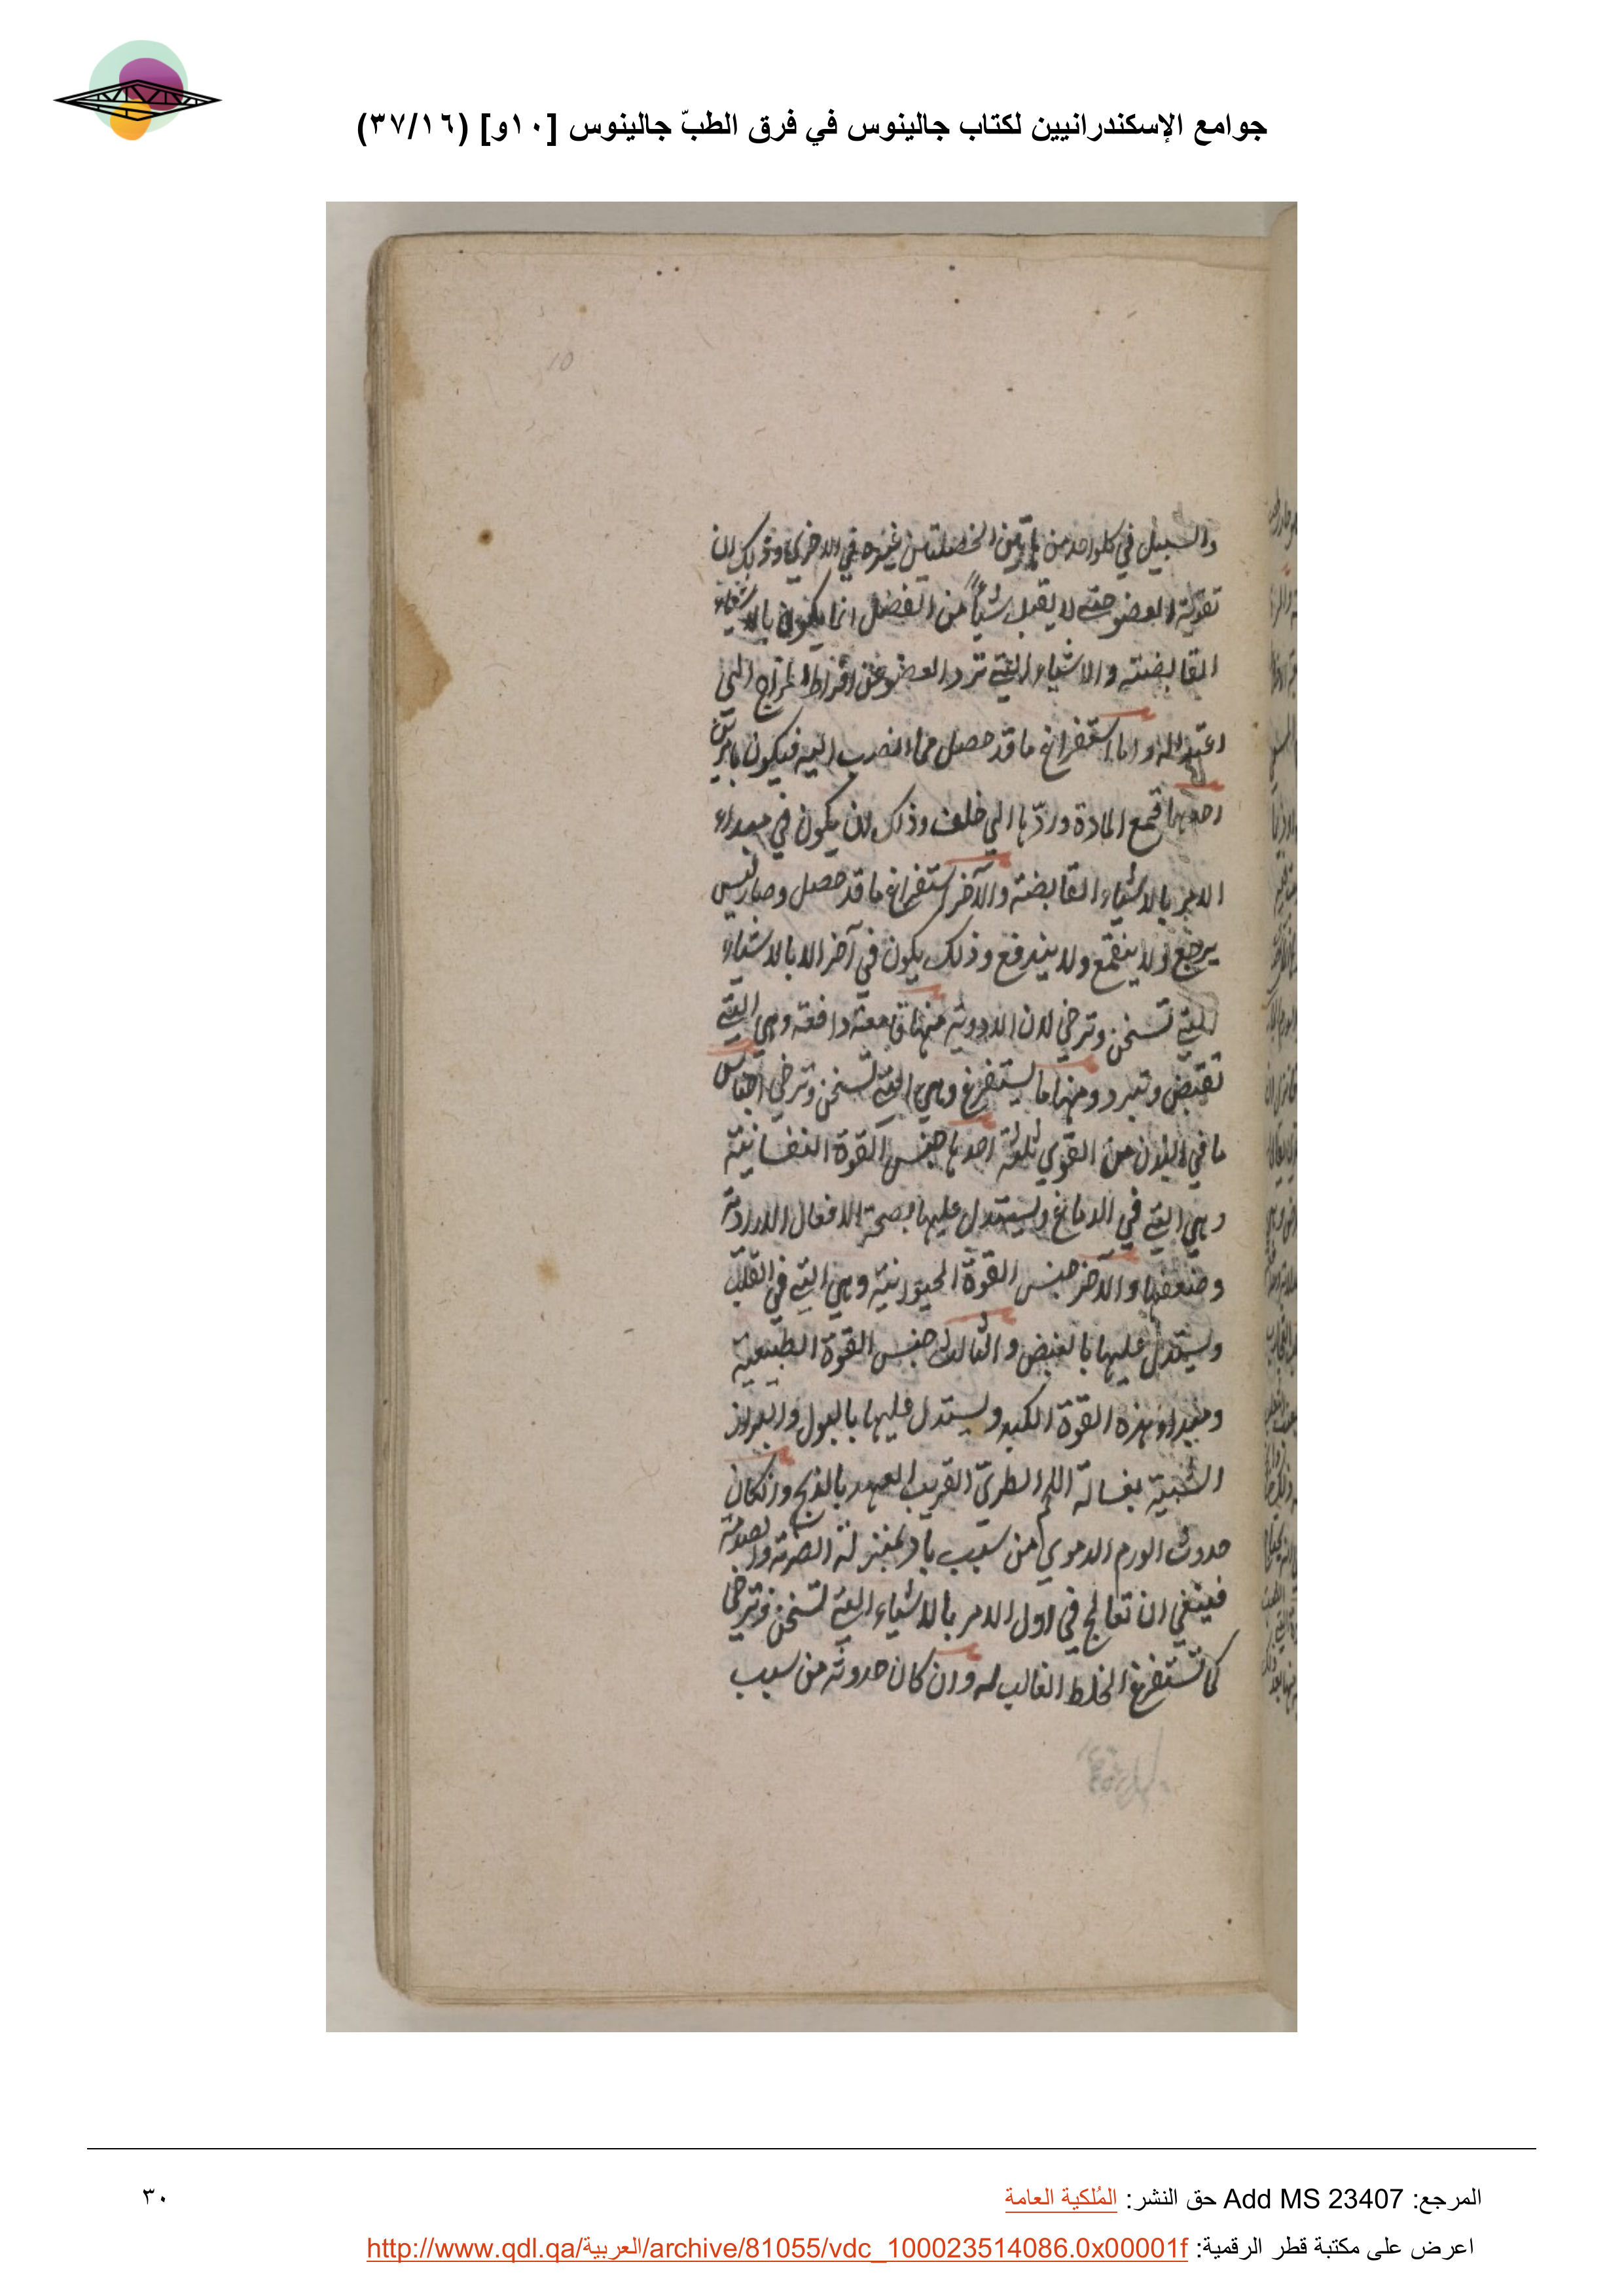 جوامع الإسكندرانيين لكتاب جالينوس في فرق الطبّ جالينوس [١٠و] (٣٧/١٦)
10
والسبيل في كلواحد من هاتين الخصلتين غيره في الاخري وذلك ان
تقوية العضو حتى لا يقبل شياً من الفضل انما يكون بالاشياء
القابضة والاشياء التي ترد العضو عن افراط المزاج الي
اعتداله واما استفراغ ما قد حصل مما انصب اليه فيكون بامرين
احدهما قمع المادة وردّها الي خلف وذلك بان يكون في مبداء
الامر بالاشياء القابضة والآخر استفراغ ما قد حصل وصار ليس
يرجع ولا ينقمع ولا يندفع وذلك يكون في آخر الا بالاشياء
التي تسخن وترخي لان الادوية منها قامعة دافعة وهي التي
تقبض وتبرد ومنها ما يستفرغ وهي التي تسخن وترخي اجناس
ما في البدن من القوي ثلثة احدها جنس القوة النفسانية
وهي التي في الدماغ ويستدل عليها بصحة الافعال الارادية
وضعفها والآخر جنس القوة الحيوانية وهي التي في القلب
ويستدل عليها بالنبض والثالث جنس القوة الطبيعية
ومبداو هذه القوة الكبد ويستدل عليها بالبول والبراز
الشبية بغسالة اللحم الطريّ القريب العهد بالذبح وان كان
حدوث الورم الدموي من سبب باد بمنزلة الضربة والصدمة
فينبغي ان تعالج في اول الامر بالاشياء التي تسخن وترخي
كما تستفرغ الخلط الغالب له وان كان حدوثه من سبب
المرجع: Add MS 23407 حق النشر: المُلكية العامة
٣٠
اعرض على مكتبة قطر الرقمية: http://www.qdl.qa/العربية/archive/81055/vdc_100023514086.0x00001f